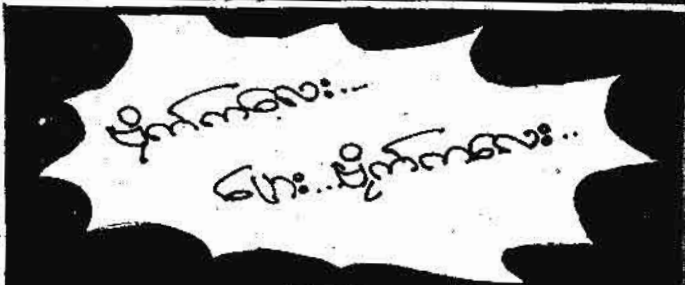 မိုက်ကလေး...
ဟေး..မိုက်ကလေး..